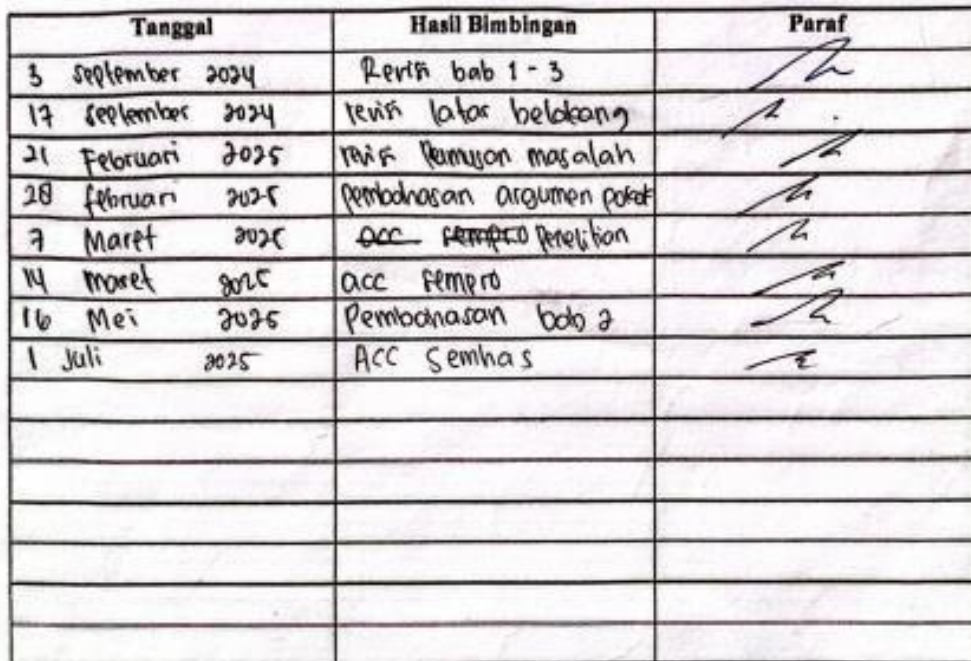 Tanggal Hasil Bimbingan Paraf
3 September 2024 Revisi bab 1 - 3
17 September 2024 revisi latar belakang
21 Februari 2025 revisi Rumusan masalah
28 februari 2025 pembahasan argumen pokok
7 Maret 2025 acc sempro Penelitian
14 maret 2025 acc sempro
16 Mei 2025 Pembahasan bab 2
1 Juli 2025 ACC Semhas